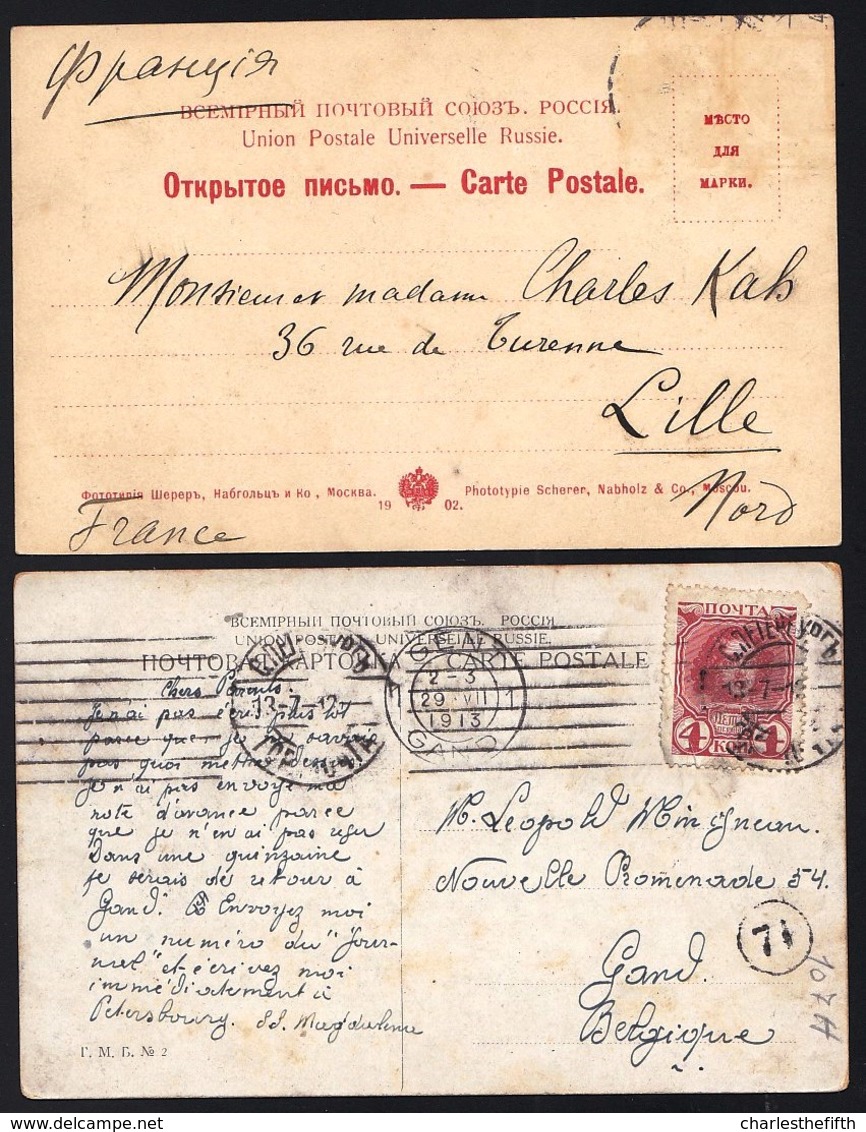 Франція
ВСЕМІРНЫЙ ПОЧТОВЫЙ СОЮЗЪ. РОССІЯ.
Union Postale Universelle Russie.
Открытое письмо. — Carte Postale.
МѢСТО
ДЛЯ
МАРКИ.
Monsieur et madame Charles Kah
36 rue de Turenne
Lille
Nord
Фототипія Шереръ, Набгольцъ и Ко, Москва.
1902.
Phototypie Scherer, Nabholz & Co., Moscou.
France
ВСЕМІРНЫЙ ПОЧТОВЫЙ СОЮЗЪ. РОССІЯ
UNION POSTALE UNIVERSELLE RUSSIE.
ПОЧТОВАЯ КАРТОЧКА — CARTE POSTALE
ПОЧТА
4 КОП 4
С.ПЕТЕРБУРГЪ
13-7-13
GENT
2-3
1 29 VII 1
1913
GAND
Chers Parents.
Je n'ai pas écrit plus tôt
parce que je ne savais
pas quoi mettre dessus
je n'ai pas envoyé ma
note d'avance parce
que je n'en ai pas reçu
Dans une quinzaine
je serais de retour à
Gand. Envoyez moi
un numéro du "Jour-
nal" et écrivez moi
immédiatement à
Petersbourg. Magdalena
M. Leopold
Nouvelle Promenade 54.
71
107A
Gand.
Belgique
Г. М. Б. № 2
charlesthefifth